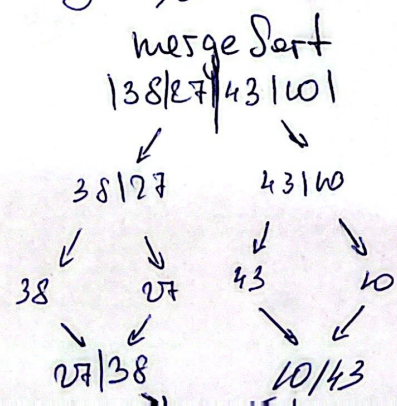 merge Sort
|38|27|43|10|
38|27 43|10
38 27 43 10
27|38 10/43